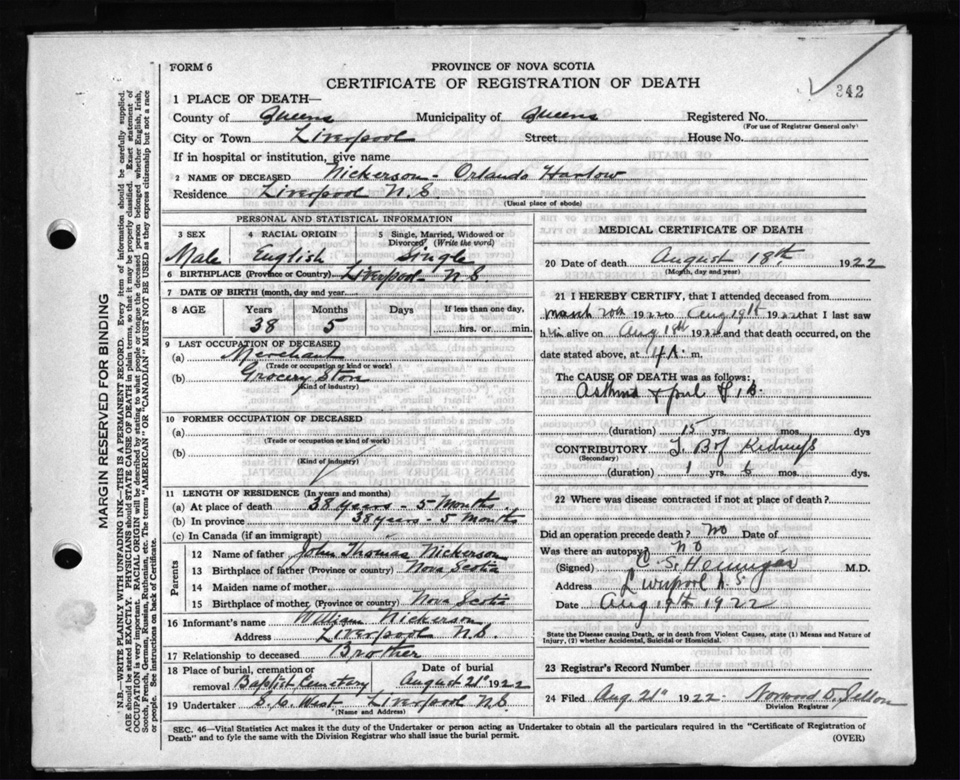 FORM 6
PROVINCE OF NOVA SCOTIA
CERTIFICATE OF REGISTRATION OF DEATH
342
1 PLACE OF DEATH—
County of Queens Municipality of Queens Registered No.
(For use of Registrar General only)
City or Town Liverpool Street House No.
If in hospital or institution, give name
2 NAME OF DECEASED Nickerson - Orlando Harlow
Residence Liverpool N.S.
(Usual place of abode)
PERSONAL AND STATISTICAL INFORMATION
3 SEX 4 RACIAL ORIGIN 5 Single, Married, Widowed or Divorced (Write the word)
Male English Single
6 BIRTHPLACE (Province or Country) Liverpool N.S
7 DATE OF BIRTH (month, day and year)
8 AGE Years Months Days If less than one day,
38 5 hrs. or min.
9 LAST OCCUPATION OF DECEASED
(a) Merchant
(Trade or occupation or kind of work)
(b) Grocery Store
(Kind of industry)
10 FORMER OCCUPATION OF DECEASED
(a)
(Trade or occupation or kind of work)
(b)
(Kind of industry)
11 LENGTH OF RESIDENCE (In years and months)
(a) At place of death 38 years - 5 Months
(b) In province 38 years - 5 Months
(c) In Canada (if an immigrant)
Parents
12 Name of father John Thomas Nickerson
13 Birthplace of father (Province or country) Nova Scotia
14 Maiden name of mother
15 Birthplace of mother (Province or country) Nova Scotia
16 Informant's name William Nickerson
Address Liverpool N.S.
17 Relationship to deceased Brother
18 Place of burial, cremation or removal Baptist Cemetery Date of burial August 21st 1922
19 Undertaker S. C. West Liverpool N.S.
(Name and Address)
MEDICAL CERTIFICATE OF DEATH
20 Date of death August 18th 1922
(Month, day and year)
21 I HEREBY CERTIFY, that I attended deceased from
March 20th 1922 to Aug 19th 1922 that I last saw
him alive on Aug 18th 1922 and that death occurred, on the
date stated above, at 4 A. m.
The CAUSE OF DEATH was as follows:
Asthma & pul T.B.
(duration) 15 yrs. mos. dys
CONTRIBUTORY T. B of Kidneys
(Secondary)
(duration) 1 yrs. 6 mos. dys.
22 Where was disease contracted if not at place of death?
Did an operation precede death? No Date of
Was there an autopsy? No
(Signed) C. S. Hennigar M.D.
Address Liverpool N.S
Date Aug 19th 1922
State the Disease causing Death, or in death from Violent Causes, state (1) Means and Nature of Injury, (2) whether Accidental, Suicidal or Homicidal.
23 Registrar's Record Number
24 Filed Aug 21st 1922 Norwood D.
Division Registrar
SEC. 46—Vital Statistics Act makes it the duty of the Undertaker or person acting as Undertaker to obtain all the particulars required in the "Certificate of Registration of
Death" and to fyle the same with the Division Registrar who shall issue the burial permit.
(OVER)
MARGIN RESERVED FOR BINDING
N.B.—WRITE PLAINLY WITH UNFADING INK—THIS IS A PERMANENT RECORD. Every item of information should be carefully supplied.
AGE should be stated EXACTLY. PHYSICIANS should STATE CAUSE OF DEATH in plain terms, so that it may be properly classified. Exact statement of
OCCUPATION is very important. RACIAL ORIGIN will be described by stating to what people or tongue the deceased person belonged whether English, Irish,
Scotch, French, German, Russian, Ruthenian, etc. The terms "AMERICAN" or "CANADIAN" MUST NOT BE USED as they express citizenship but not a race
or people. See instructions on back of Certificate.